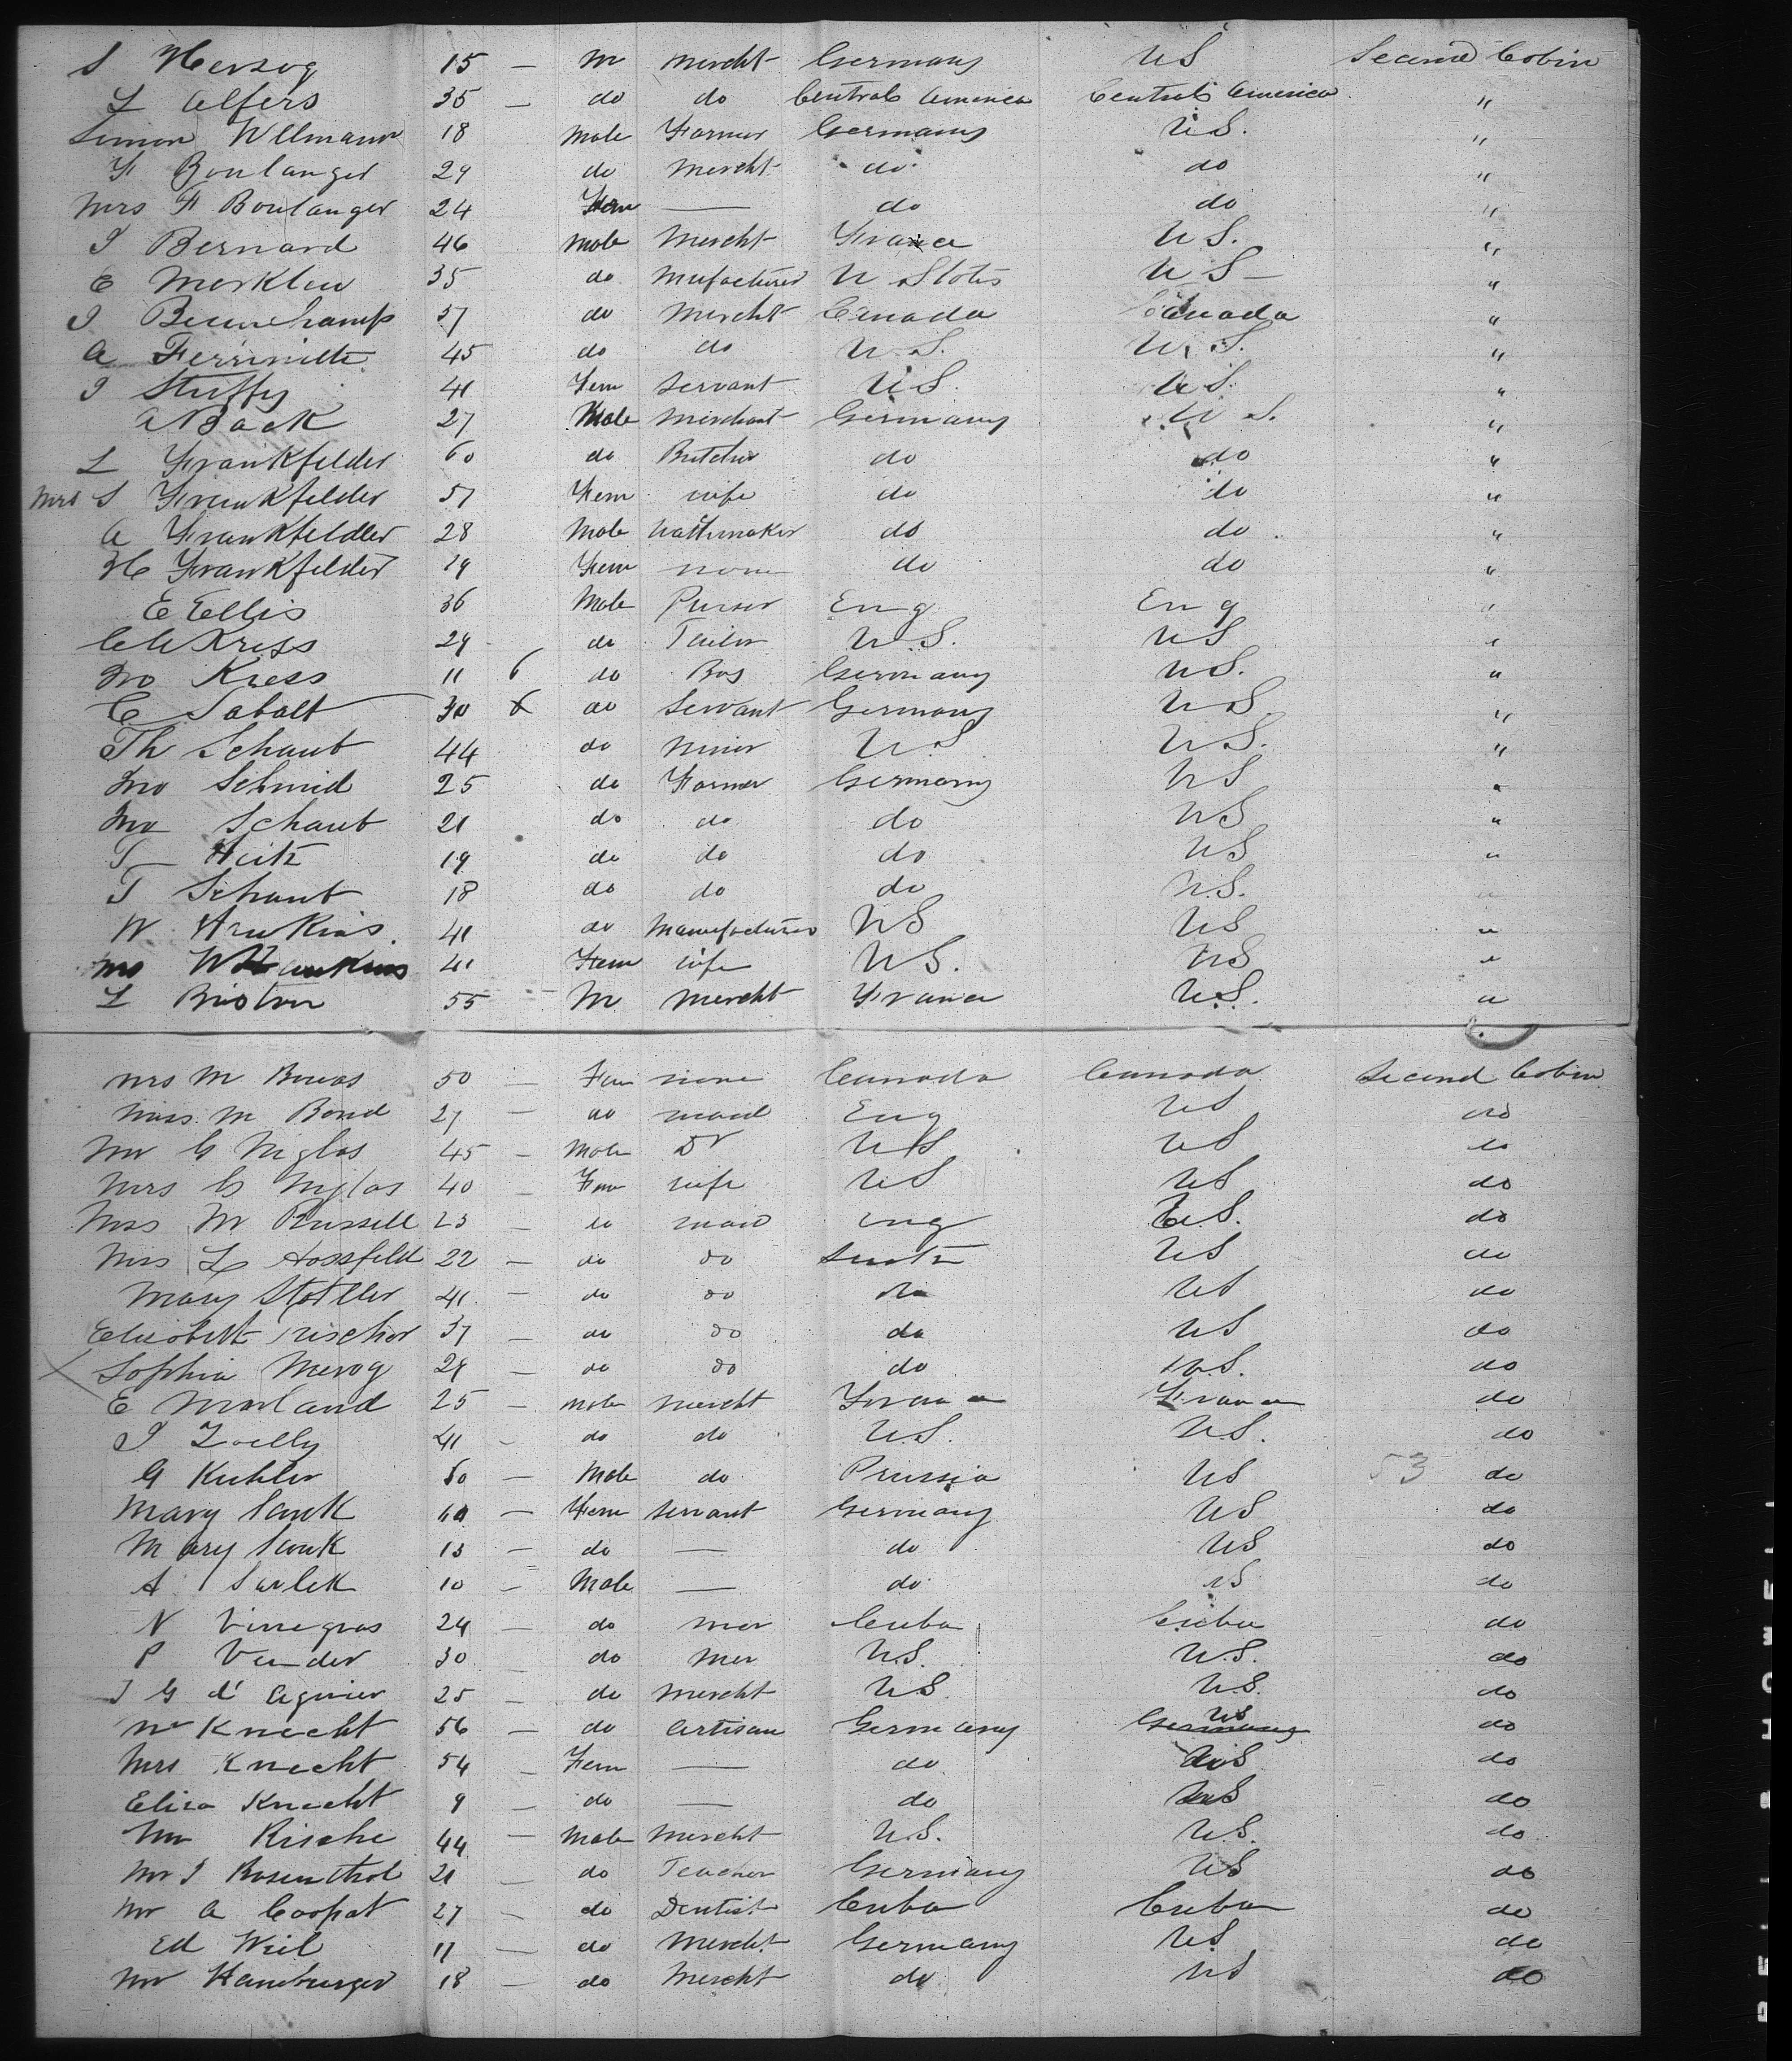 S Herzog 15 — M Mercht Germany US Second Cabin
L Alfers 35 — do do Central America Central America "
Simon Ullmann 18 Male Farmer Germany U.S. "
F Boulanger 29 do Mercht do do "
Mrs F Boulanger 24 Fem — do do "
J Bernard 46 Male Mercht France U S. "
E Merklen 35 do Mnfacturer U States U S — "
J Beauchamp 37 do Mercht Canada Canada "
A 45 do do U.S. U.S. "
J Steffy 41 Fem Servant U S. U S. "
A Back 27 Male Merchant Germany U S. "
L Frankfelder 60 do Butcher do do "
Mrs S Frankfelder 57 Fem wife do do "
A Frankfeldler 28 Male do do "
H Frankfelder 19 Fem none do do "
E Ellis 36 Male Purser Eng Eng "
Kress 29 do Tailor U.S. U S "
Jno Kress 11 6 do Boy Germany U.S. "
C Sabalt 30 x do Servant Germany U S. "
Th Schaub 44 do Miner U S U.S. "
Jno Schmid 25 do Farmer Germany U S "
Jno Schaub 21 do do do U S "
T Heitz 19 do do do U S "
T Schaub 18 do do do U.S. "
W Hawkins 41 do Manufacturer U S U S "
Mrs W Hawkins 41 Fem wife U S. U S "
L Briston 55 — M Mercht France U.S. "
Mrs M 50 — Fem none Canada Canada Second Cabin
Miss M Bond 27 — do maid Eng U S do
Mr G Niglas 45 — Male Dr U S U S do
Mrs G Niglas 40 — Fem wife U S U S do
Miss M Russell 23 — do maid Eng U.S. do
Miss L Hossfeld 22 — do do U S do
Mary Stotller 41 — do do do U S do
Elisabeth Fischer 37 — do do do U S do
x Sophia 29 — do do do U.S. do
E Morland 25 — male mercht France France do
J Zoelly 41 — do do U.S. U.S. do
G Kuhler 50 — Male do Prussia U S 53 do
Mary Sauk — Fem servant Germany U S do
Mary Sauk 13 — do — do U S do
A 10 — Male — do U S do
N Vinegras 24 — do mer Cuba Cuba do
P Vander 30 — do Mer U.S. U.S. do
J G d'Aguier 25 — do Mercht U S U.S. do
Mr Knecht 56 — do Artisan Germany Germany US do
Mrs Knecht 54 — Fem — do U S do
Eliza Knecht 9 — do — do U S do
Mr Rische 44 — Male Mercht U.S. U.S. do
Mr J Rosenthal 21 — do Teacher Germany U S do
Mr A 27 — do Dentist Cuba Cuba do
Ed Weil — do Mercht Germany U S do
Mr Hamburger 18 — do Mercht do U S do